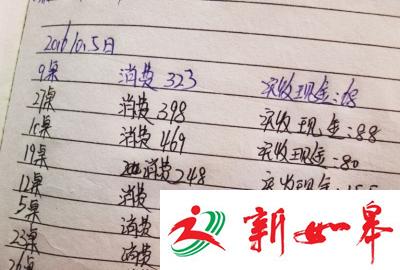 2016.10.5日
9桌 消费 323 实收现金:68
27桌 消费 398 实收现金:88
1桌 消费 469 实收现金:80
19桌 消费 248 实收现金:
12桌 消费
5桌 消费
23桌 消费
26桌
新如皋